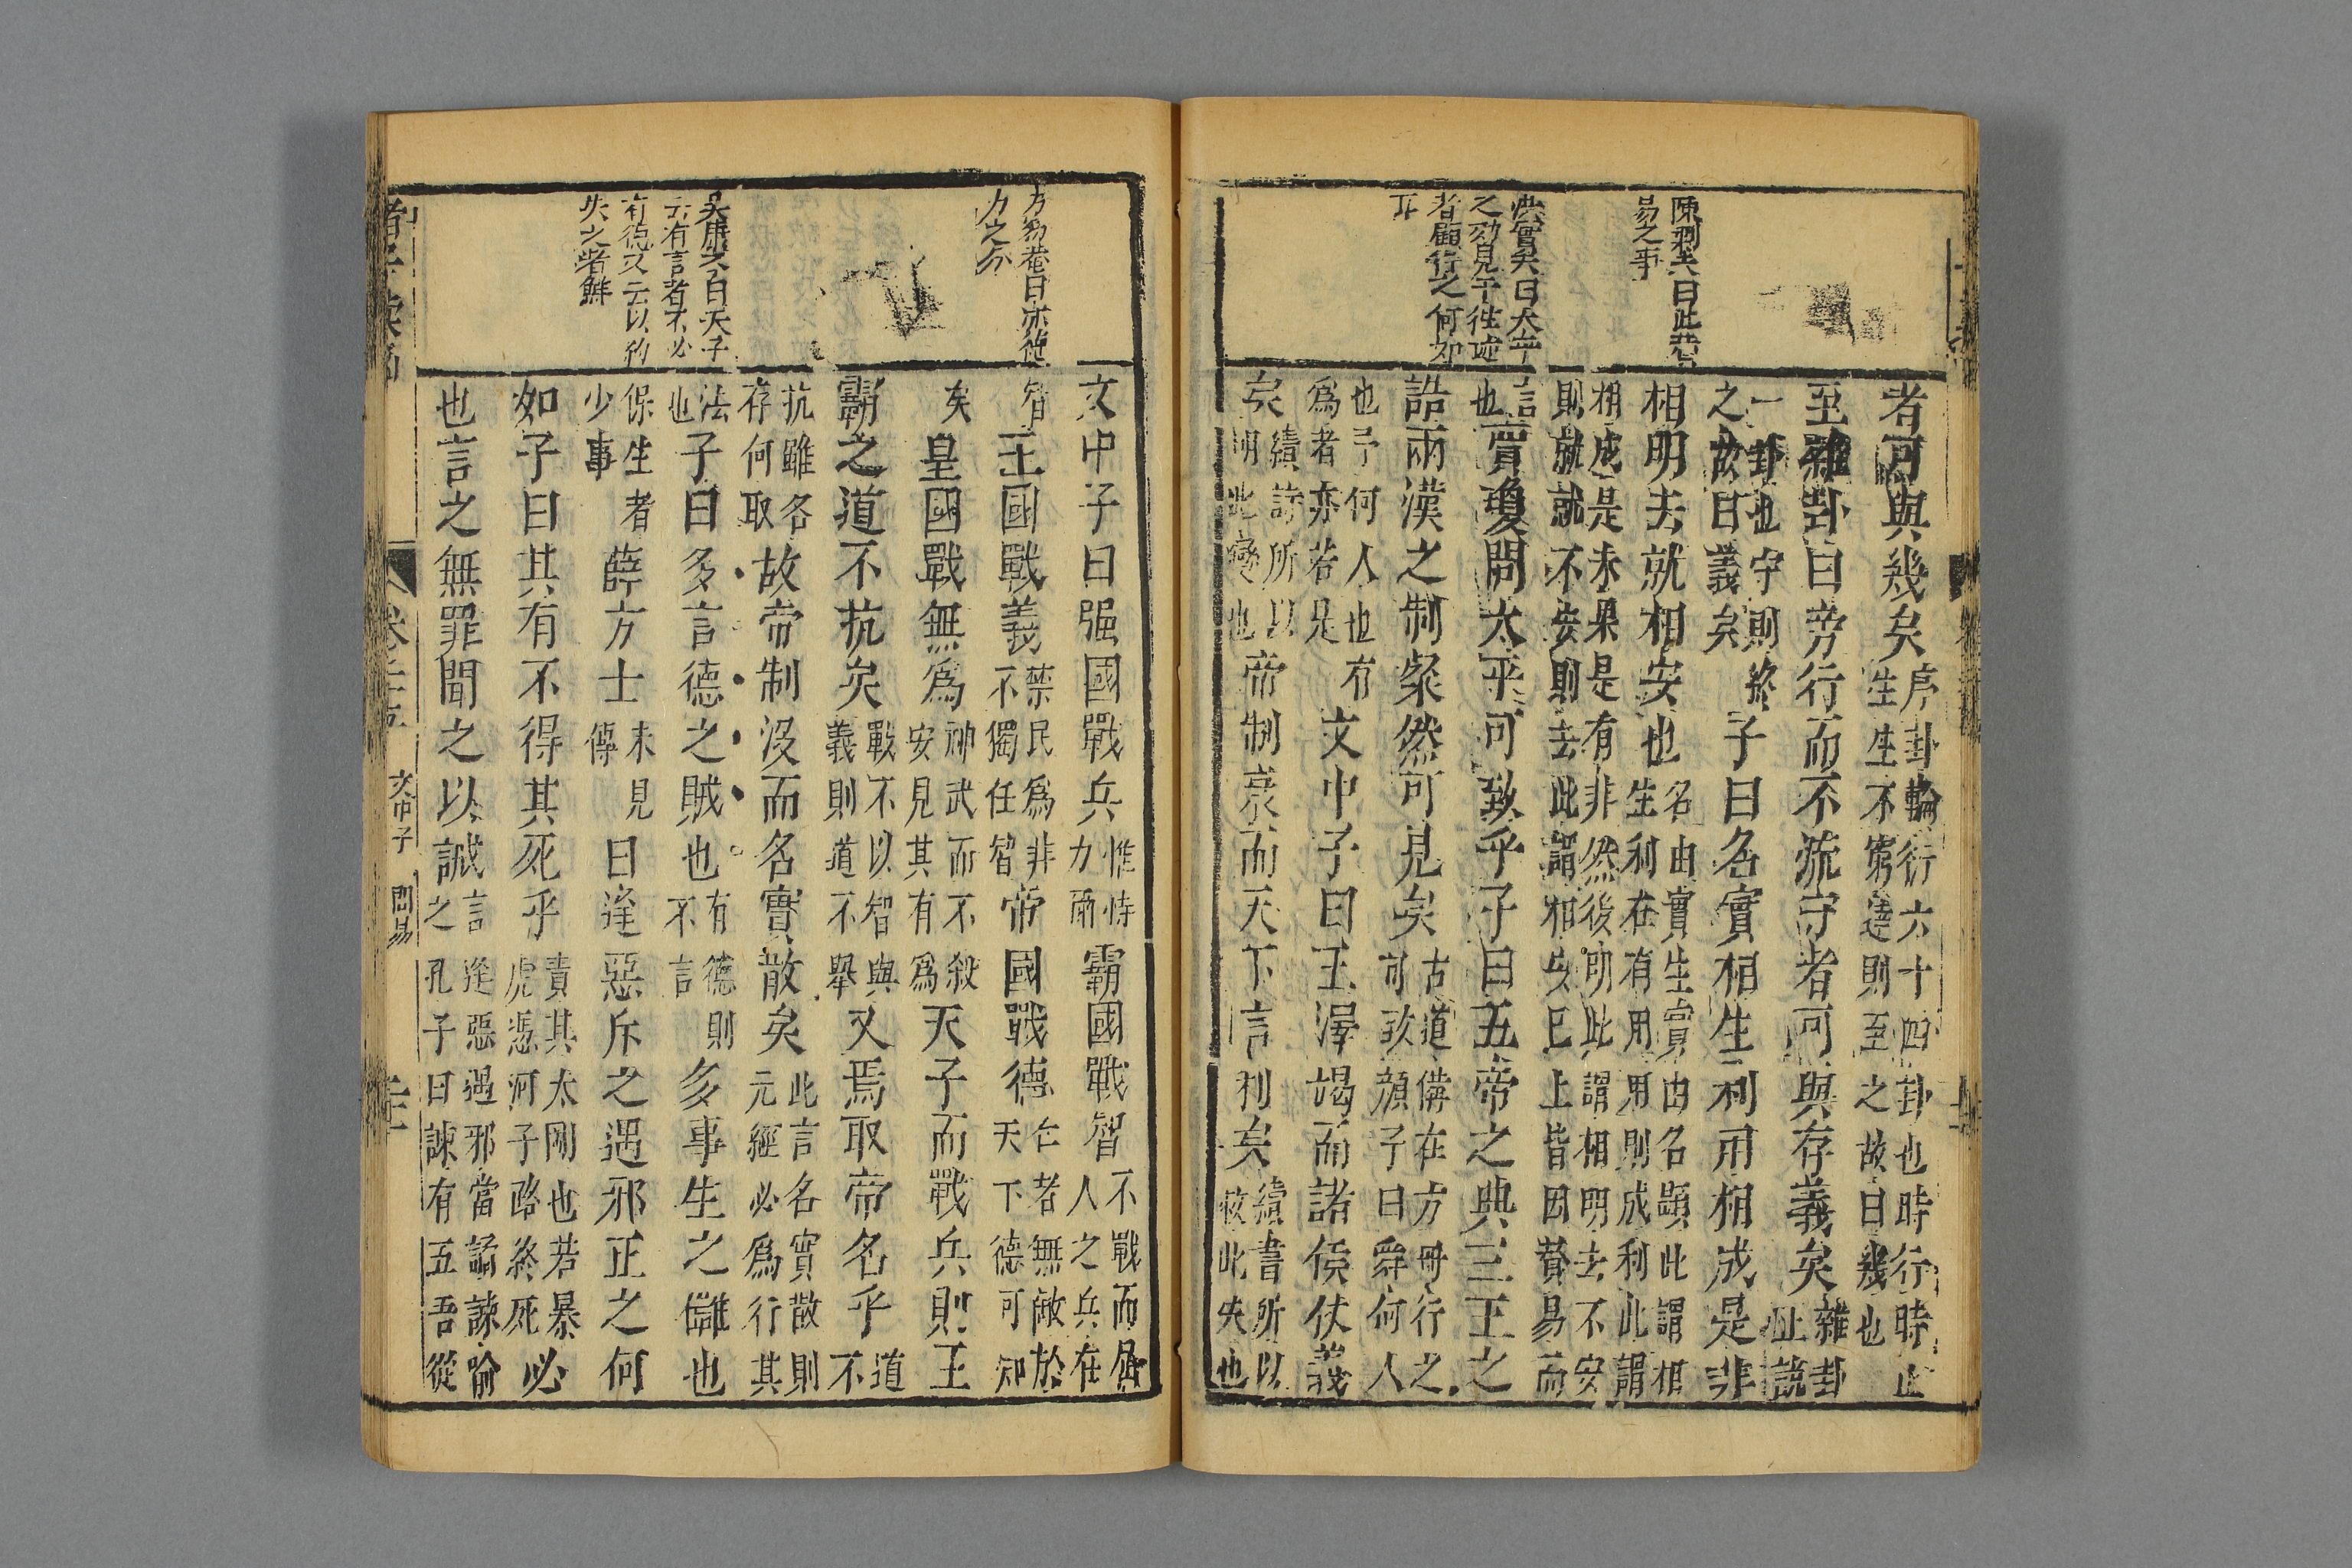 陳剩夫曰此昔
易之事
洪實夫曰太平
之効見于徃迹
者顧行之何如
耳
者可與幾矣序卦輪行六十四卦也時行時止
生生不窮達則至之故曰幾也
至雜卦曰旁行而不流守者可與存義矣雜卦
止說
一卦也守則終
之故曰義矣子曰名實相生利用相成是非
相明去就相安也名由實生實由名顯此謂相
生利在有用用則成利此謂
相成是未果是有非然後明此謂相明去不安
則就就不安則去此謂相安已上皆因賛易而
言
也賈瓊問太平可致乎子曰五帝之典三王之
誥兩漢之制粲然可見矣古道備在方冊行之
可致顏子曰舜何人
也予何人也有
爲者亦若是文中子曰王澤竭而諸侯仗義
矣續詩所以
明此變也帝制衰而天下言利矣續書所以
救此失也
方爲巷曰亦徙
力之分
吳康夫曰天子
云有言者不必
有德又云以約
失之者鮮
文中子曰强國戰兵惟恃
力爾霸國戰智不戰而屈
人之兵在
智王國戰義禁民爲非
不獨任智帝國戰德仁者無敵於
天下德可知
矣皇國戰無爲神武而不殺
安見其有爲天子而戰兵則王
霸之道不抗矣戰不以智與
義則道不舉又焉取帝名乎道
不
抗雖名
存何取故帝制没而名實散矣此言名實散則
元經必爲行其
法
也子曰多言德之賊也有德則
不言多事生之讎也
保生者
少事薛方士未見
傳曰逢惡斥之遇邪正之何
如子曰其有不得其死乎責其太剛也若暴
虎馮河子路終死必
也言之無罪聞之以誡言逢惡遇邪當譎諫喻
之孔子曰諫有五吾從
卷二十五
文中子
問易